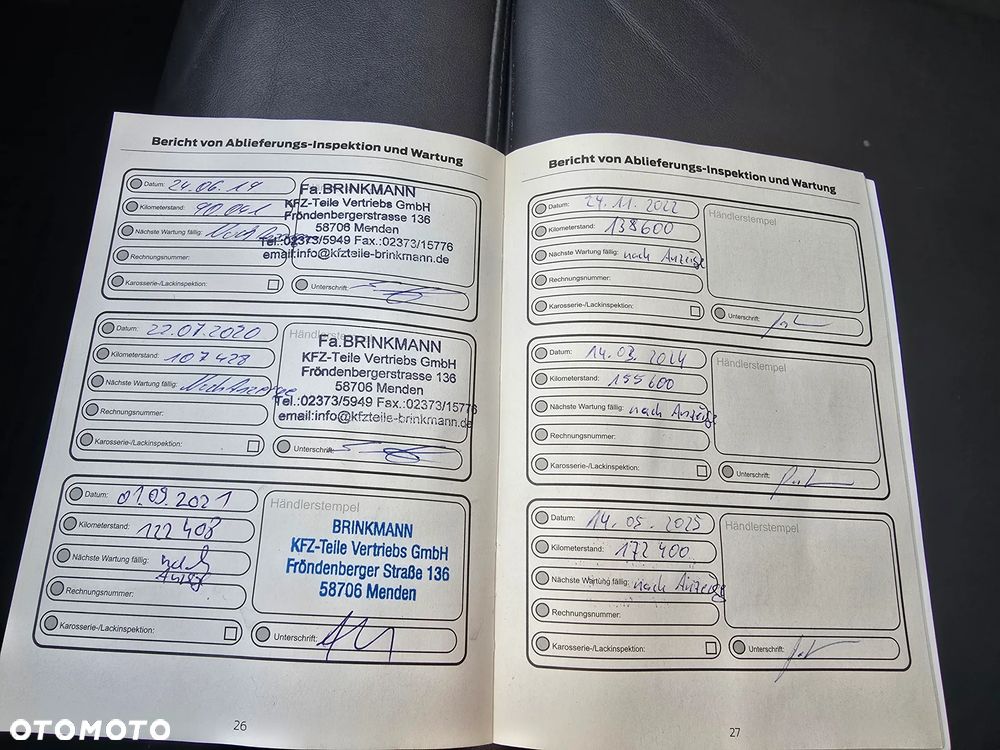 Bericht von Ablieferungs-Inspektion und Wartung
Datum: 24.06.19
Kilometerstand: 90.041
Nächste Wartung fällig:
Rechnungsnummer:
Karosserie-/Lackinspektion:
Fa.BRINKMANN
KFZ-Teile Vertriebs GmbH
Fröndenbergerstrasse 136
58706 Menden
Tel.:02373/5949 Fax.:02373/15776
email:info@kfzteile-brinkmann.de
Unterschrift:
Datum: 22.07.2020
Kilometerstand: 107428
Nächste Wartung fällig: Nach Anzeige
Rechnungsnummer:
Karosserie-/Lackinspektion:
Händlerstempel
Fa.BRINKMANN
KFZ-Teile Vertriebs GmbH
Fröndenbergerstrasse 136
58706 Menden
Tel.:02373/5949 Fax.:02373/15776
email:info@kfzteile-brinkmann.de
Unterschrift:
Datum: 01.09.2021
Kilometerstand: 122 408
Nächste Wartung fällig: nach
Anzeige
Rechnungsnummer:
Karosserie-/Lackinspektion:
Händlerstempel
BRINKMANN
KFZ-Teile Vertriebs GmbH
Fröndenberger Straße 136
58706 Menden
Unterschrift:
26
Bericht von Ablieferungs-Inspektion und Wartung
Datum: 24.11.2022
Kilometerstand: 138600
Nächste Wartung fällig: nach Anzeige
Rechnungsnummer:
Karosserie-/Lackinspektion:
Händlerstempel
Unterschrift:
Datum: 14.03.2024
Kilometerstand: 155600
Nächste Wartung fällig: nach Anzeige
Rechnungsnummer:
Karosserie-/Lackinspektion:
Händlerstempel
Unterschrift:
Datum: 14.05.2025
Kilometerstand: 172 400
Nächste Wartung fällig: nach Anzeige
Rechnungsnummer:
Karosserie-/Lackinspektion:
Händlerstempel
Unterschrift:
27
OTOMOTO